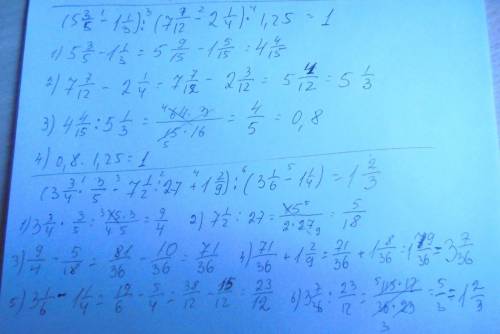 (5 3/5 - 1 1/3) : (7 7/12 - 2 1/4) · 1,25 = 1
1) 5 3/5 - 1 1/3 = 5 9/15 - 1 5/15 = 4 4/15
2) 7 7/12 - 2 1/4 = 7 7/12 - 2 3/12 = 5 4/12 = 5 1/3
3) 4 4/15 : 5 1/3 = 64·3/15·16 = 4/5 = 0,8
4) 0,8 · 1,25 = 1
(3 3/4 · 3/5 - 7 1/2 : 27 + 1 2/9) : (3 1/6 - 1 1/4) = 1 2/3
1) 3 3/4 · 3/5 = 15·3/4·5 = 9/4 2) 7 1/2 : 27 = 15/2·27 = 5/18
3) 9/4 - 5/18 = 81/36 - 10/36 = 71/36 4) 71/36 + 1 2/9 = 71/36 + 1 8/36 = 1 79/36 = 3 7/36
5) 3 1/6 - 1 1/4 = 19/6 - 5/4 = 38/12 - 15/12 = 23/12 6) 3 7/36 : 23/12 = 115·12/36·23 = 5/3 = 1 2/3